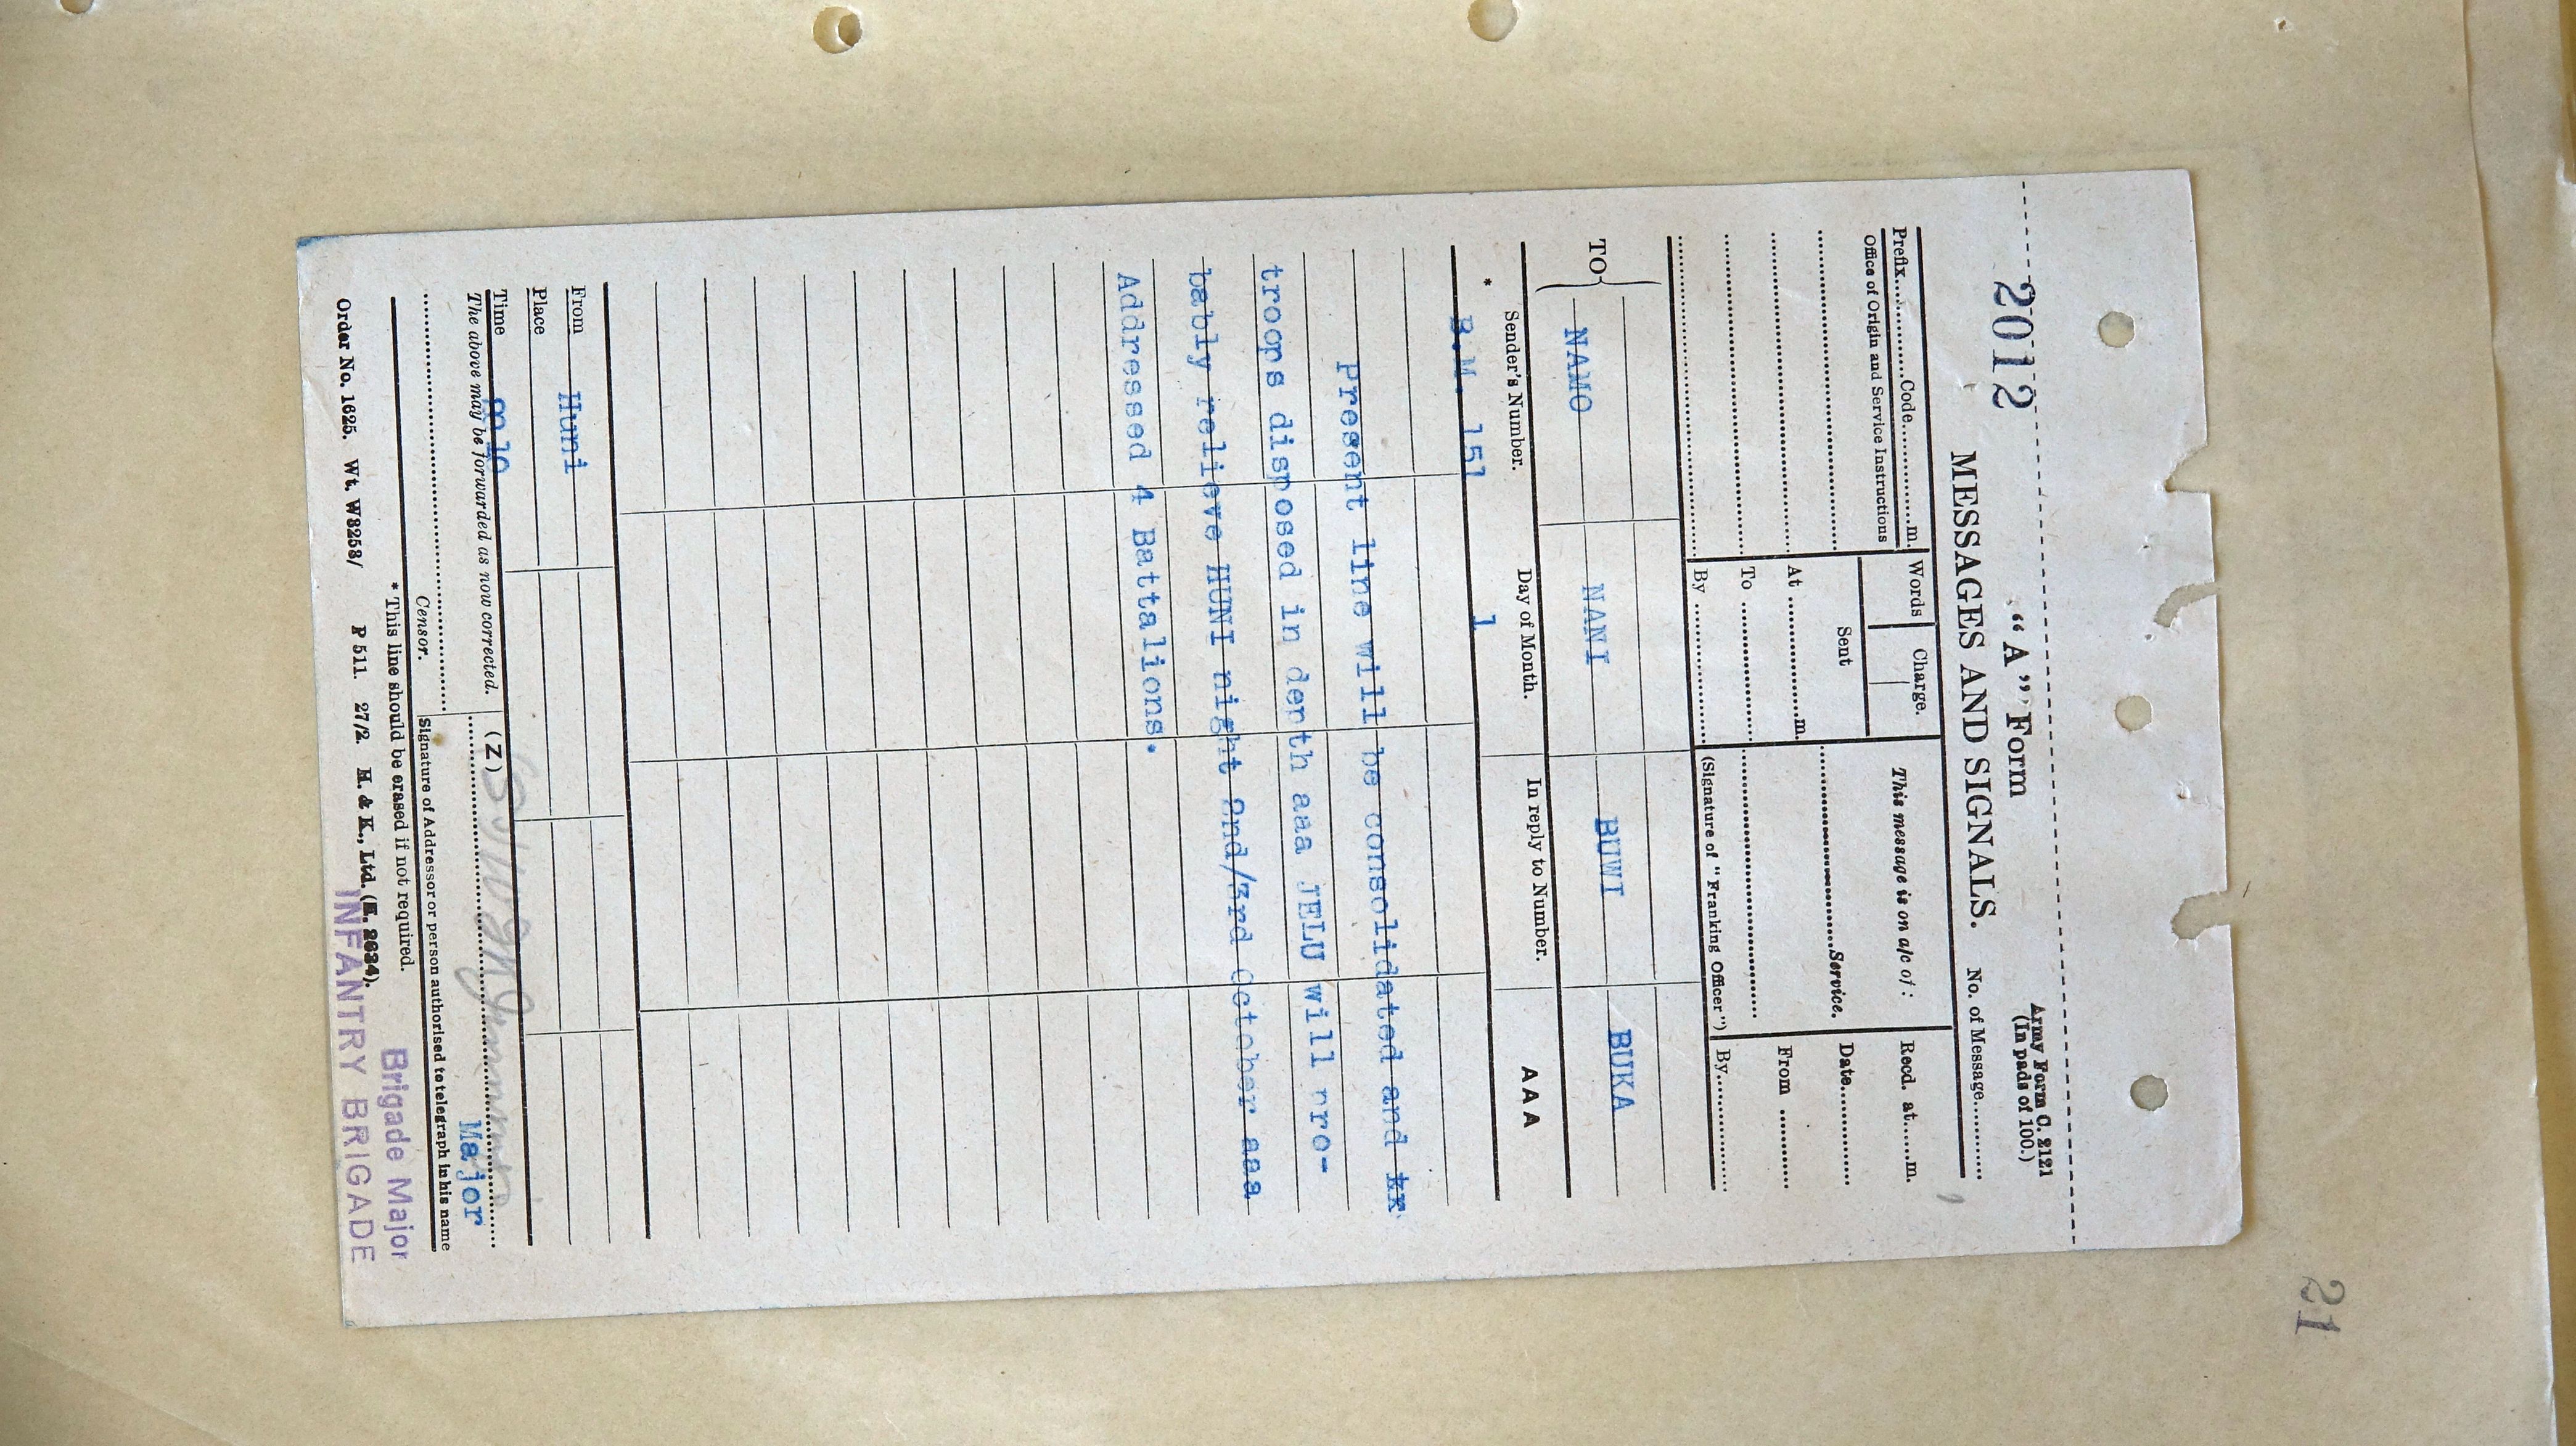 21
2012
"A" Form
Army Form C. 2121
(In pads of 100.)
MESSAGES AND SIGNALS.
No. of Message............
Prefix............Code............m.
Words
Charge.
This message is on a/c of :
Recd. at......m.
Office of Origin and Service Instructions
Sent
Date............
At ............m.
............Service.
From ............
To ............
By ............
(Signature of "Franking Officer")
By............
TO
NAMO
NANI
BUWI
BUKA
* Sender's Number.
Day of Month.
In reply to Number.
AAA
B.M. 151
1
Present line will be consolidated and
troops disposed in depth aaa JELU will pro-
bably relieve HUNI night 2nd/3rd October aaa
Addressed 4 Battalions.
From
Huni
Place
Time
The above may be forwarded as now corrected.
(Z)
Major
Censor.
Signature of Addressor or person authorised to telegraph in his name
* This line should be erased if not required.
Brigade Major
Order No. 1625. Wt. W3253/ P 511. 27/2. H. & K., Ltd. (E. 2634).
INFANTRY BRIGADE